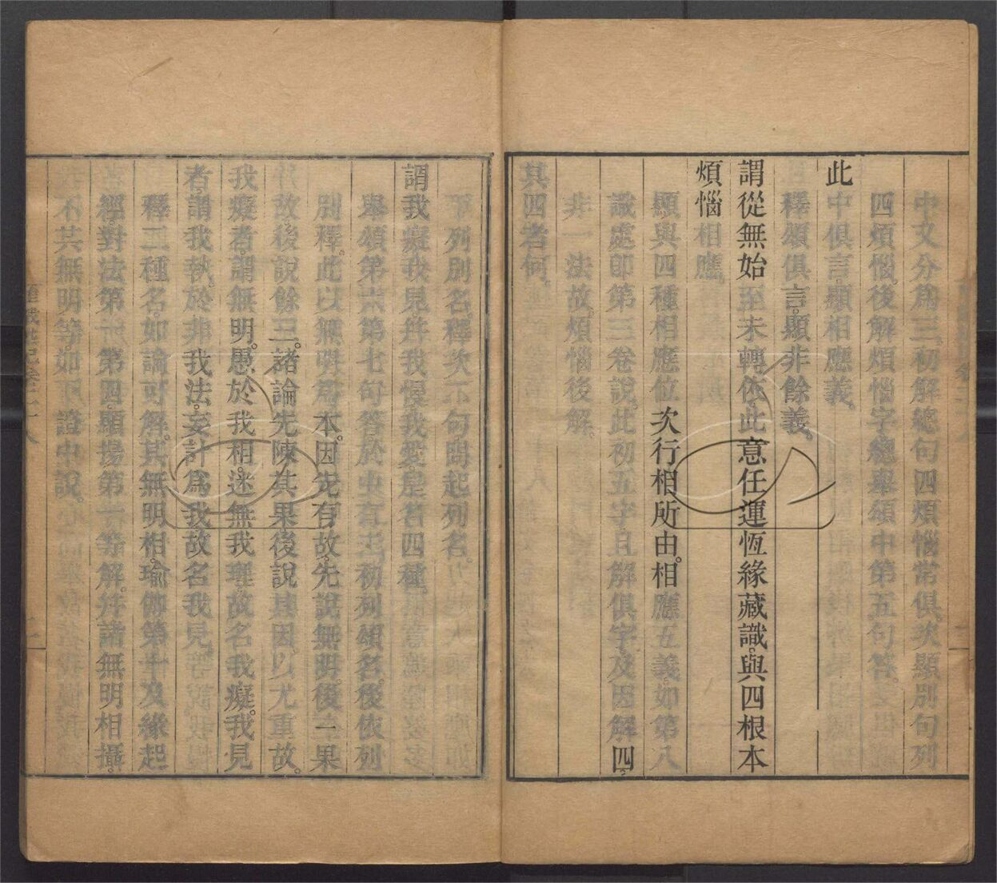 中文分爲三初解總句四煩惱常俱次顯別句列
四煩惱後解煩惱字總舉頌中第五句答
此中俱言顯相應義
釋頌俱言。顯非餘義。
謂從無始至未轉依此意任運恆緣藏識與四根本
煩惱相應。
顯與四種相應位次行相所由。相應五義。如第八
識處卽第三卷說。此初五字且解俱字及因解四。
非一法故。煩惱後解。
其四者何。
下列別名釋次下句問起列名。
謂我癡我見幷我慢我愛是名四種
舉頌第六第七句答於中有三初列頌名後依列
別釋。此以無明爲本。因先有故。先說無明。後二果
故後說餘三。諸論先陳其果後說其因以尤重故。
我癡者謂無明。愚於我相迷無我理故名我癡。我見
者謂我執。於非我法。妄計爲我故名我見
釋二種名。如論可解。其無明相。瑜伽第十及緣起
經對法第一第四。顯揚第一等解。幷諸無明相攝。
不共無明等如下證中說